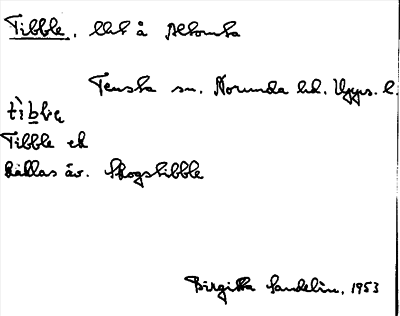 Tibble, llt å Altomta
Tensta sn. Norunda hd. Upps. l.
tìbḷę
Tibble ek
kallas äv. Skogstibble
Birgitta Sandelin, 1953